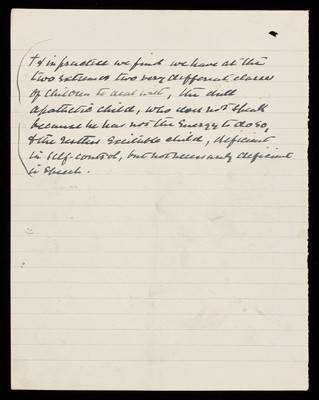 & in practice we find we have at the
two extremes two very different classes
of children to deal with, the dull
apathetic child, who does not speak
because he has not the energy to do so,
& the restless excitable child, deficient
in self-control, but not necessarily deficient
in speech.